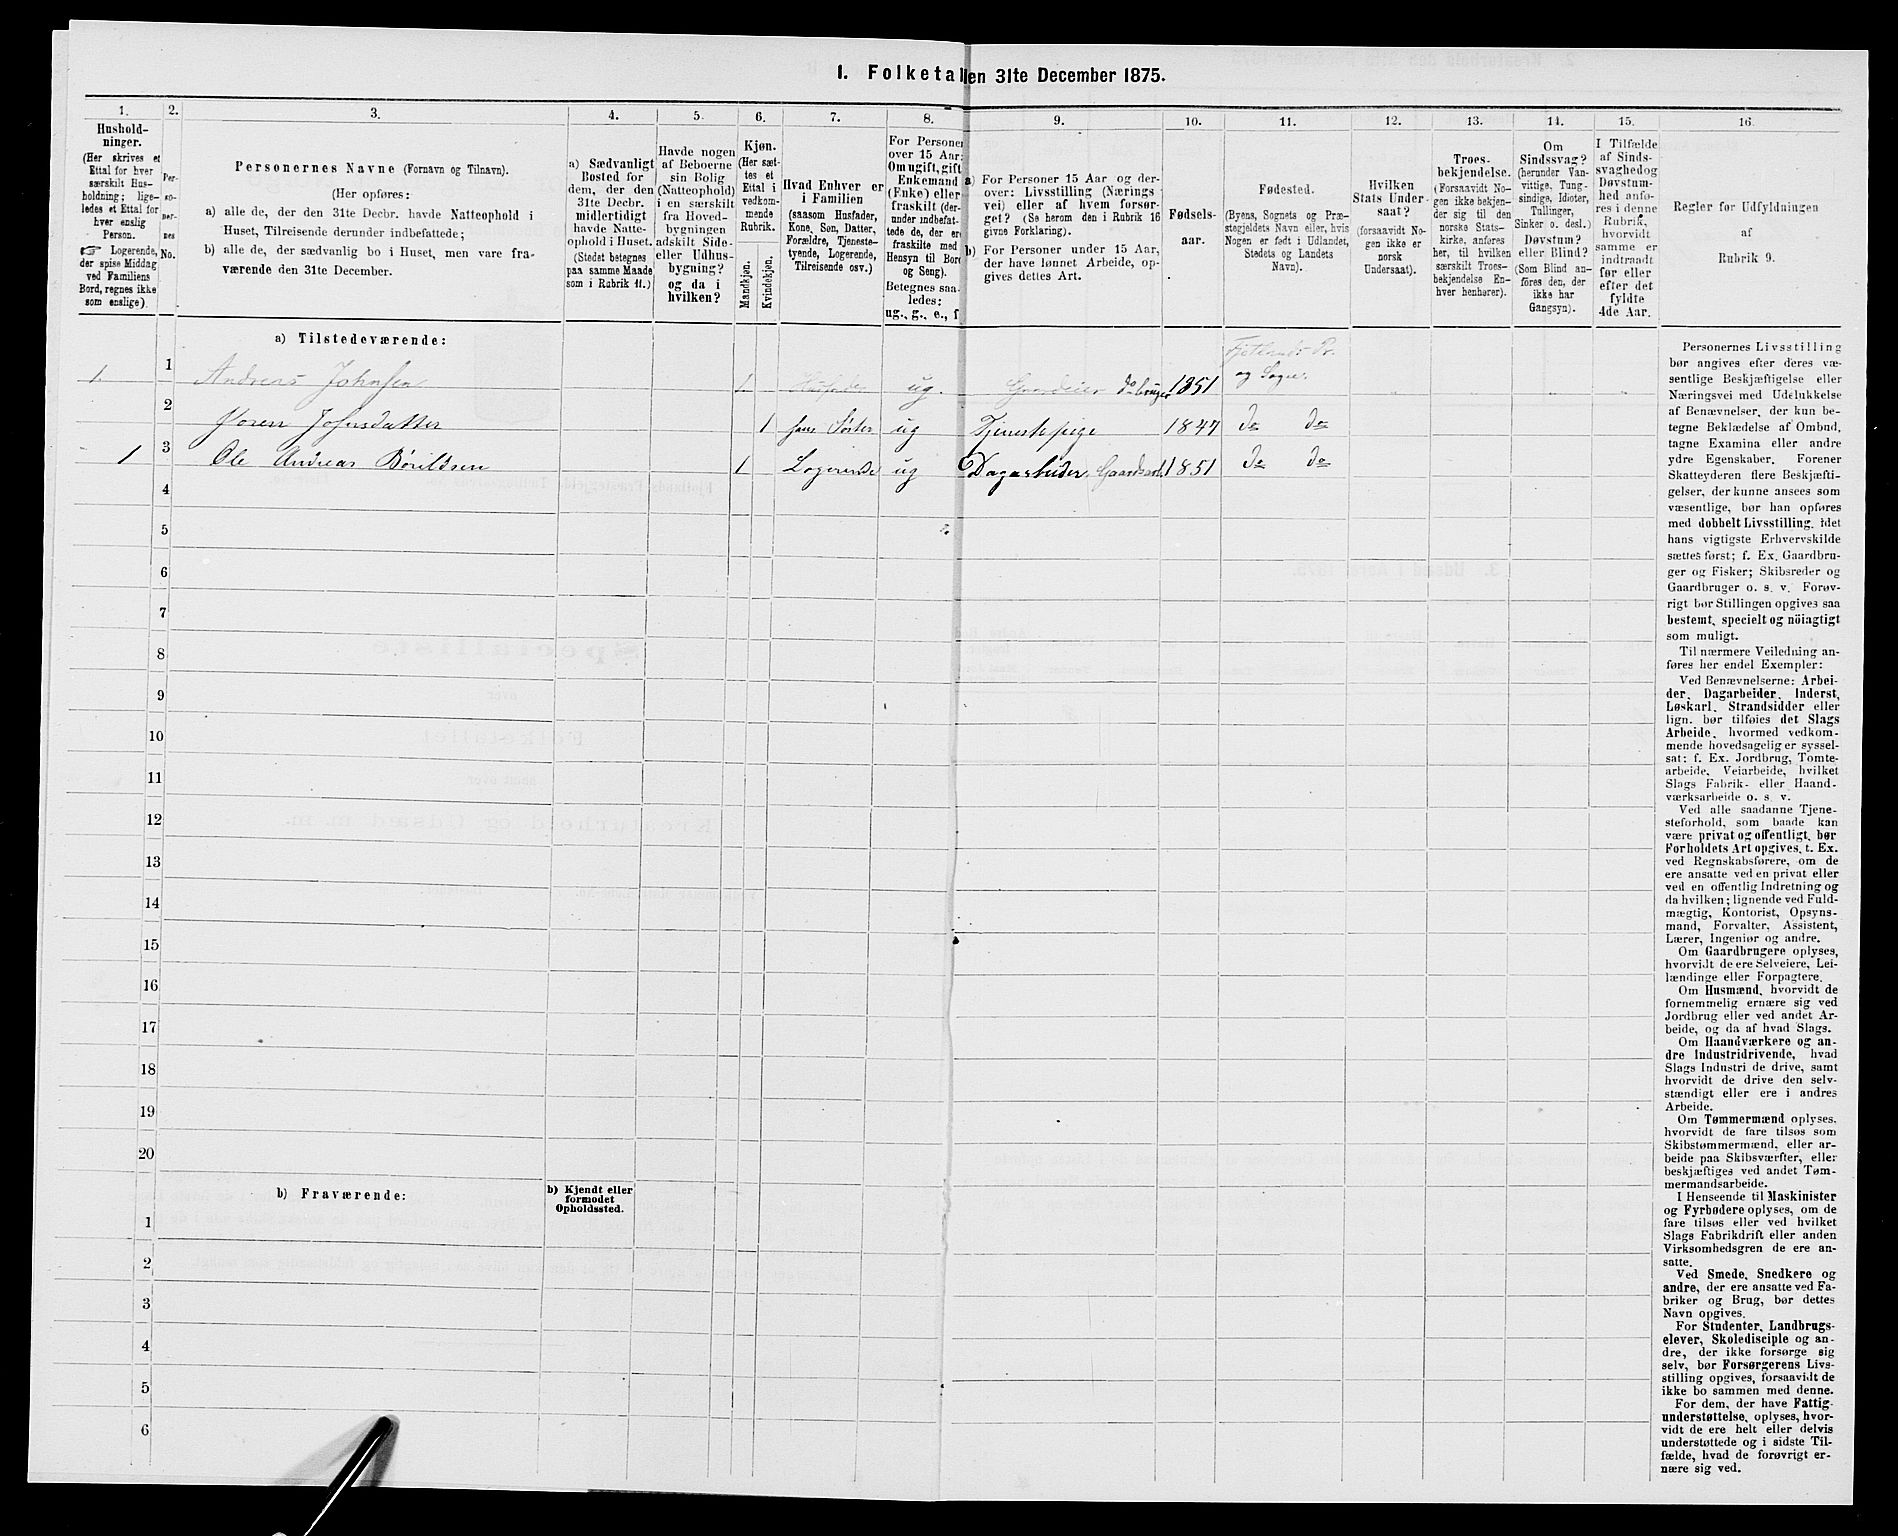 1. Folketallen 31te December 1875.
1. 2. 3. 4. 5. 6. 7. 8. 9. 10. 11. 12. 13. 14. 15. 16.
Hushold-
ninger.
(Her skrives et
Ettal for hver
særskilt Hus-
holdning; lige-
ledes et Ettal for
hver enslig
Person.
☞ Logerende,
der spise Middag
ved Familiens
Bord, regnes ikke
som enslige).
Per-
so-
ner-
nes
No.
Personernes Navne (Fornavn og Tilnavn).
(Her opføres:
a) alle de, der den 31te Decbr. havde Natteophold i
Huset, Tilreisende derunder indbefattede;
b) alle de, der sædvanlig bo i Huset, men vare fra-
værende den 31te December.
a) Sædvanligt
Bosted for
dem, der den
31te Decbr.
midlertidigt
havde Natte-
ophold i Huset.
(Stedet betegnes
paa samme Maade
som i Rubrik 11.)
Havde nogen
af Beboerne
sin Bolig
(Natteophold)
i en særskilt
fra Hoved-
bygningen
adskilt Side-
eller Udhus-
bygning?
og da i
hvilken?
Kjøn.
(Her sæt-
tes et
Ettal i
vedkom-
mende
Rubrik.
Mandkjøn.
Kvindekjøn.
Hvad Enhver er
i Familien
(saasom Husfader,
Kone, Søn, Datter,
Forældre, Tjeneste-
tyende, Logerende,
Tilreisende osv.)
For Personer
over 15 Aar:
Om ugift, gift,
Enkemand
(Enke) eller
fraskilt (der-
under indbefat-
tede de, der ere
fraskilte med
Hensyn til Bord
og Seng).
Betegnes saa-
ledes:
ug., g., e., f.
a) For Personer 15 Aar og der-
over: Livsstilling (Nærings
vei) eller af hvem forsør-
get? (Se herom den i Rubrik 16
givne Forklaring).
b) For Personer under 15 Aar,
der have lønnet Arbeide, op-
gives dettes Art.
Fødsels-
aar.
Fødested.
(Byens, Sognets og Præ-
stegjeldets Navn eller, hvis
Nogen er født i Udlandet,
Stedets og Landets
Navn).
Hvilken
Stats Under
saat?
(forsaavidt No-
gen ikke er
norsk
Undersaat).
Troes-
bekjendelse.
(Forsaavidt No-
gen ikke bekjen-
der sig til den
norske Stats-
kirke, anføres
her, til hvilken
særskilt Troes-
bekjendelse En-
hver henhører).
Om
Sindssvag?
(herunder Van-
vittige, Tung-
sindige, Idioter,
Tullinger,
Sinker o. desl.)
Døvstum?
eller Blind?
(Som Blind an-
føres den, der
ikke har
Gangsyn).
I Tilfælde
af Sinds-
svaghed og
Døvstum-
hed anfø-
res i denne
Rubrik,
hvorvidt
samme er
indtraadt
før eller
efter det
fyldte
4de Aar.
Regler for Udfyldningen
af
Rubrik 9.
a) Tilstedeværende:
1. 1 Andreas Johnsen 1. Husfader ug. Gaardeier do bruger 1851 Fjotlands Pr. og Sogn.
2 Joren Johnsdatter 1 hans Søster ug Tjenestepige 1847 do do
1 3 Ole Andreas Børildsen 1 Logerende ug Dagarbeider, Gaardsarb. 1851 do do
4
5
6
7
8
9
10
11
12
13
14
15
16
17
18
19
20
b) Fraværende:
b) Kjendt eller
formodet
Opholdssted.
1
2
3
4
5
6
Personernes Livsstilling
bør angives efter deres væ-
sentlige Beskjæftigelse eller
Næringsvei med Udelukkelse
af Benævnelser, der kun be-
tegne Beklædelse af Ombud,
tagne Examina eller andre
ydre Egenskaber. Forener
Skatteyderen flere Beskjæfti-
gelser, der kunne ansees som
væsentlige, bør han opføres
med dobbelt Livsstilling, idet
hans vigtigste Erhvervskilde
sættes først; f. Ex. Gaardbru-
ger og Fisker; Skibsreder og
Gaardbruger o. s. v. Forøv-
rigt bør Stillingen opgives saa
bestemt, specielt og nöiagtigt
som muligt.
Til nærmere Veiledning an-
føres her endel Exempler:
Ved Benævnelserne: Arbei-
der, Dagarbeider, Inderst,
Løskarl, Strandsidder eller
lign. bør tilføies det Slags
Arbeide, hvormed vedkom-
mende hovedsagelig er syssel-
sat: f. Ex. Jordbrug, Tomte-
arbeide, Veiarbeide, hvilket
Slags Fabrik- eller Haand-
værksarbeide o. s. v.
Ved alle saadanne Tjene-
steforhold, som baade kan
være privat og offentligt, bør
Forholdets Art opgives, t. Ex.
ved Regnskabsførere, om de
ere ansatte ved en privat eller
ved en offentlig Indretning og
da hvilken; lignende ved Fuld-
mægtig, Kontorist, Opsyns-
mand, Forvalter, Assistent,
Lærer, Ingeniør og andre.
Om Gaardbrugere oplyses,
hvorvidt de ere Selveiere, Lei-
lændinge eller Forpagtere.
Om Husmænd, hvorvidt de
fornemmelig ernære sig ved
Jordbrug eller ved andet Ar-
beide, og da af hvad Slags.
Om Haandværkere og an-
dre Industridrivende, hvad
Slags Industri de drive, samt
hvorvidt de drive den selv-
stændigt eller ere i andres
Arbeide.
Om Tømmermænd oplyses,
hvorvidt de fare tilsøs som
Skibstømmermænd, eller ar-
beide paa Skibsværfter, eller
beskjæftiges ved andet Tøm-
mermandsarbeide.
I Henseende til Maskinister
og Fyrbødere oplyses, om de
fare tilsøs eller ved hvilket
Slags Fabrikdrift eller anden
Virksomhedsgren de ere an-
satte.
Ved Smede, Snedkere og
andre, der ere ansatte ved Fa-
briker og Brug, bør dettes
Navn opgives.
For Studenter, Landbrugs-
elever, Skoledisciple og an-
dre, der ikke forsørge sig
selv, bør Forsørgerens Livs-
stilling opgives, forsaavidt de
ikke bo sammen med denne.
For dem, der have Fattig-
understøttelse, oplyses, hvor-
vidt de ere helt eller delvis
understøttede og i sidste Til-
fælde, hvad de forøvrigt er-
nære sig ved.